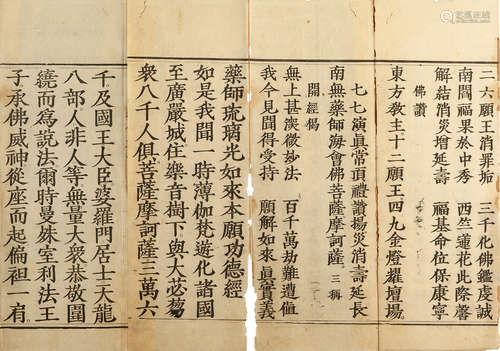 二六願王消罪垢　三千化佛鑑虔誠
南閻福果於中秀　西竺蓮花此際馨
解結消災增延壽　福基命位保康寧
佛讚
東方教主十二願王四九金燈耀壇場
七七演眞常頂禮讚揚災消壽延長
南無藥師海會佛菩薩摩訶薩 三稱
開經偈
無上甚深微妙法　百千萬劫難遭値
我今見聞得受持　願解如來眞實義
藥師琉璃光如來本願功德經
如是我聞一時薄伽梵遊化諸國
至廣嚴城住樂音樹下與大苾芻
衆八千人俱菩薩摩訶薩三萬六
千及國王大臣婆羅門居士天龍
八部人非人等無量大衆恭敬圍
繞而為說法爾時曼殊室利法王
子承佛威神從座而起偏袒一肩